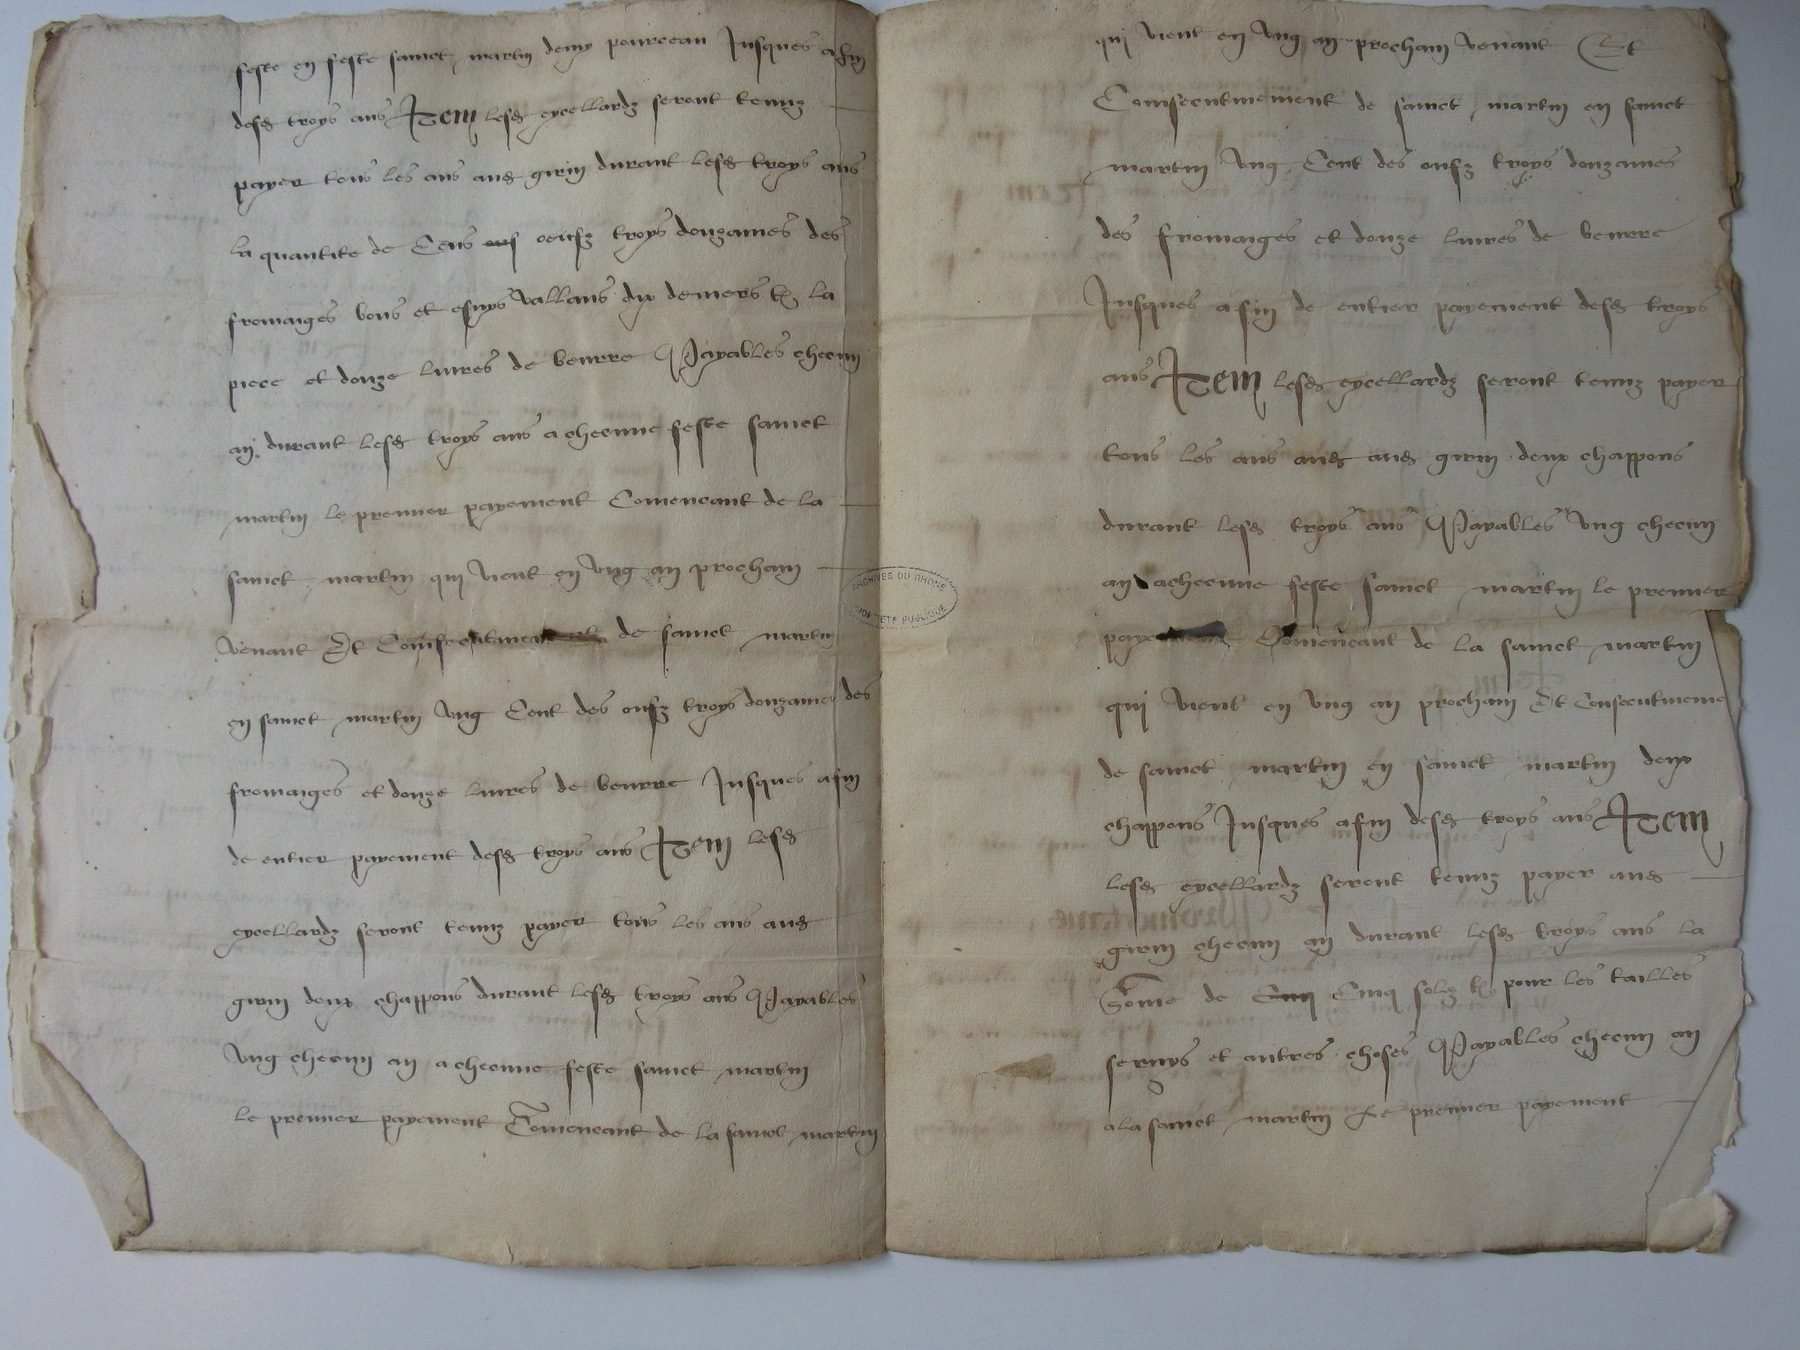 feste en feste sainct martin demy pourceau Jusques a fin
desd troys ans Item lesd eycellardz seront tenuz
payer tous les ans aud girin durant lesd troys ans
la quantite de Cens oeufz troys douzaines des
fromaiges bons et esuys vallans dix deniers t la
piece et douze liures de beurre Payables checun
an durant lesd troys ans a checune feste sainct
martin le premier payement Comencant de la
sainct martin qui vient en vng an prochain
venant Et Consecutiuement de sainct martin
en sainct martin vng Cent des oufz troys douzaines des
fromaiges et douze liures de beurre Jusques a fin
de entier payement desd troys ans Item lesd
eycellardz seront tenuz payer tous les ans aud
girin deux chappons durant lesd troys ans Payables
vng checun an a checune feste sainct martin
le premier payement Comencant de la sainct martin
qui vient en vng an prochain venant Et
Consecutiuement de sainct martin en sainct
martin vng Cent des oufz troys douzaines
des fromaiges et douze liures de beurre
Jusques a fin de entier payement desd troys
ans Item lesd eycellardz seront tenuz payer
tous les ans aud aud girin deux chappons
durant lesd troys ans Payables vng checun
an a checune feste sainct martin le premier
payement Comencant de la sainct martin
qui vient en vng an prochain Et Consecutiueme
de sainct martin en sainct martin deux
chappons Jusques a fin desd troys ans Item
lesd eycellardz seront tenuz payer aud
girin checun an durant lesd troys ans la
Some de Cinq solz t pour les tailles
seruys et autres choses Payables checun an
a la sainct martin Le premier payement
ARCHIVES DU RHONE
PROPRIETE PUBLIQUE